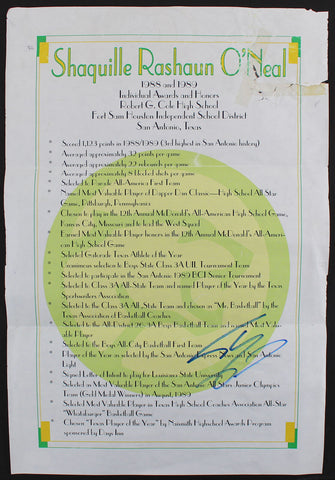 Shaquille Rashaun O'Neal
1988 and 1989
Individual Awards and Honors
Robert G. Cole High School
Fort Sam Houston Independent School District
San Antonio, Texas
Scored 1,123 points in 1988/1989 (3rd highest in San Antonio history)
Averaged approximately 32 points per game
Averaged approximately 22 rebounds per game
Averaged approximately 8 blocked shots per game
Selected to Parade All-America First Team
Named Most Valuable Player of Dapper Dan Classic—High School All-Star
Game, Pittsburg, Pennsylvania
Chosen to play in the 12th Annual McDonald's All-American High School Game,
Kansas City, Missouri and to lead the West Squad
Earned Most Valuable Player honors in the 12th Annual McDonald's All-Ameri-
can High School Game
Selected Gatorade Texas Athlete of the Year
Unanimous selection to Boys State Class 3A UIL Tournament Team
Selected to participate in the San Antonio 1989 BCI Senior Tournament
Selected to Class 3A All-State Team and named Player of the Year by the Texas
Sportswriters Association
Selected to the Class 3A All-State Team and chosen as "Mr. Basketball" by the
Texas Association of Basketball Coaches
Selected to the All-District 26-3A Boys Basketball Team and named Most Valu-
able Player
Selected to the Boys All-City Basketball First Team
Player of the Year as selected by the San Antonio Express News and San Antonio
Light
Signed Letter of Intent to play for Louisiana State University
Selected as Most Valuable Player of the San Antonio All-Stars Junior Olympics
Team (Gold Medal Winners) in August, 1989
Selected Most Valuable Player in Texas High School Coaches Association All-Star
"Whataburger" Basketball Game
Chosen "Texas Player of the Year" by Naismith Highschool Awards Program
sponsored by Days Inn